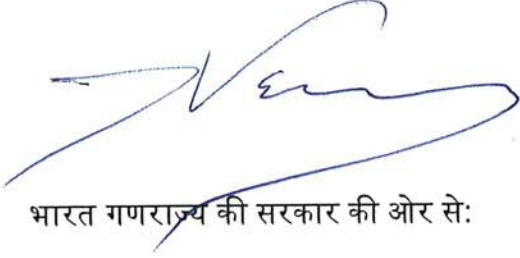 भारत गणराज्य की सरकार की ओर से: